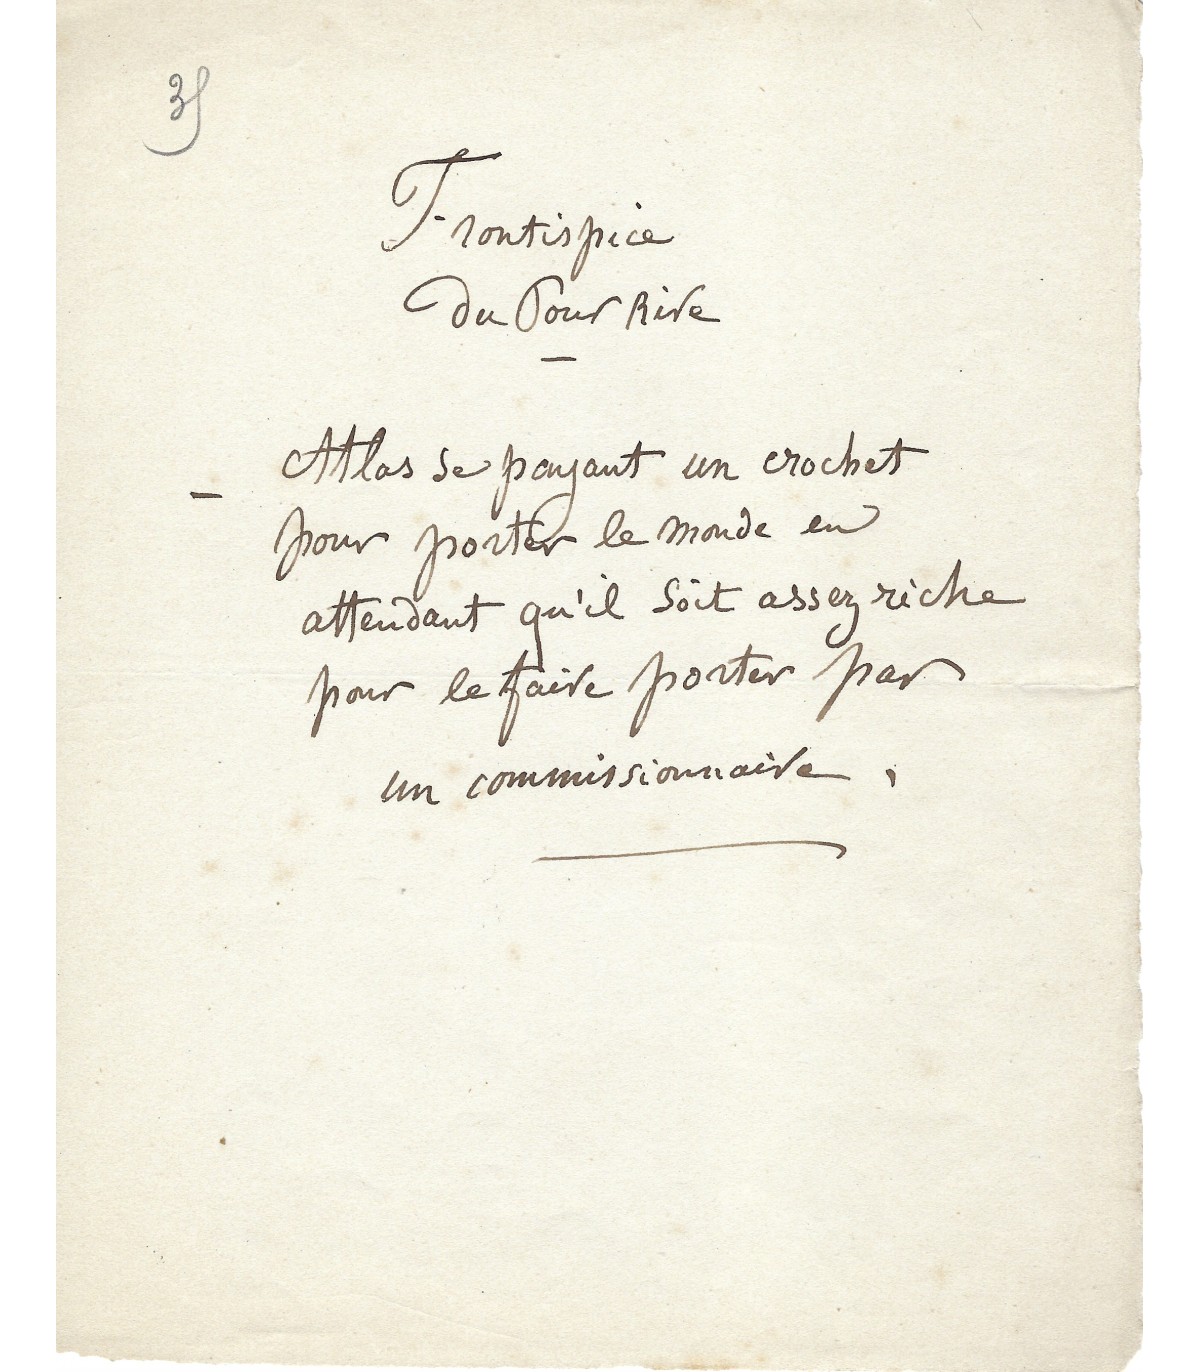 Frontispice
du Pour Rire
—
— Atlas se payant un crochet
pour porter le monde en
attendant qu'il soit assez riche
pour le faire porter par
un commissionnaire.